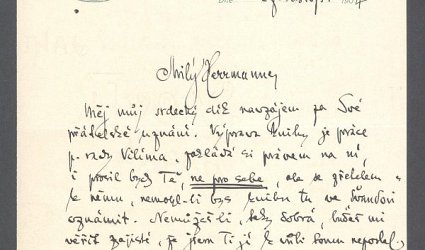 Milý Herrmanne,
Měj můj srdečný dík navzájem za Své
přátelské uznání. Výprava knihy je práce
p. rady Vilíma, zakládá si právem na ní,
i prosil bych Tě, ne pro sebe, ale se zřetelem
k němu, nemohl-li bys knihu tu ve Švandovi
oznámit. Nemůžeš-li, taky dobrá, budeš mi
věřit zajisté, že jsem Ti ji k vůli tomu neposlal